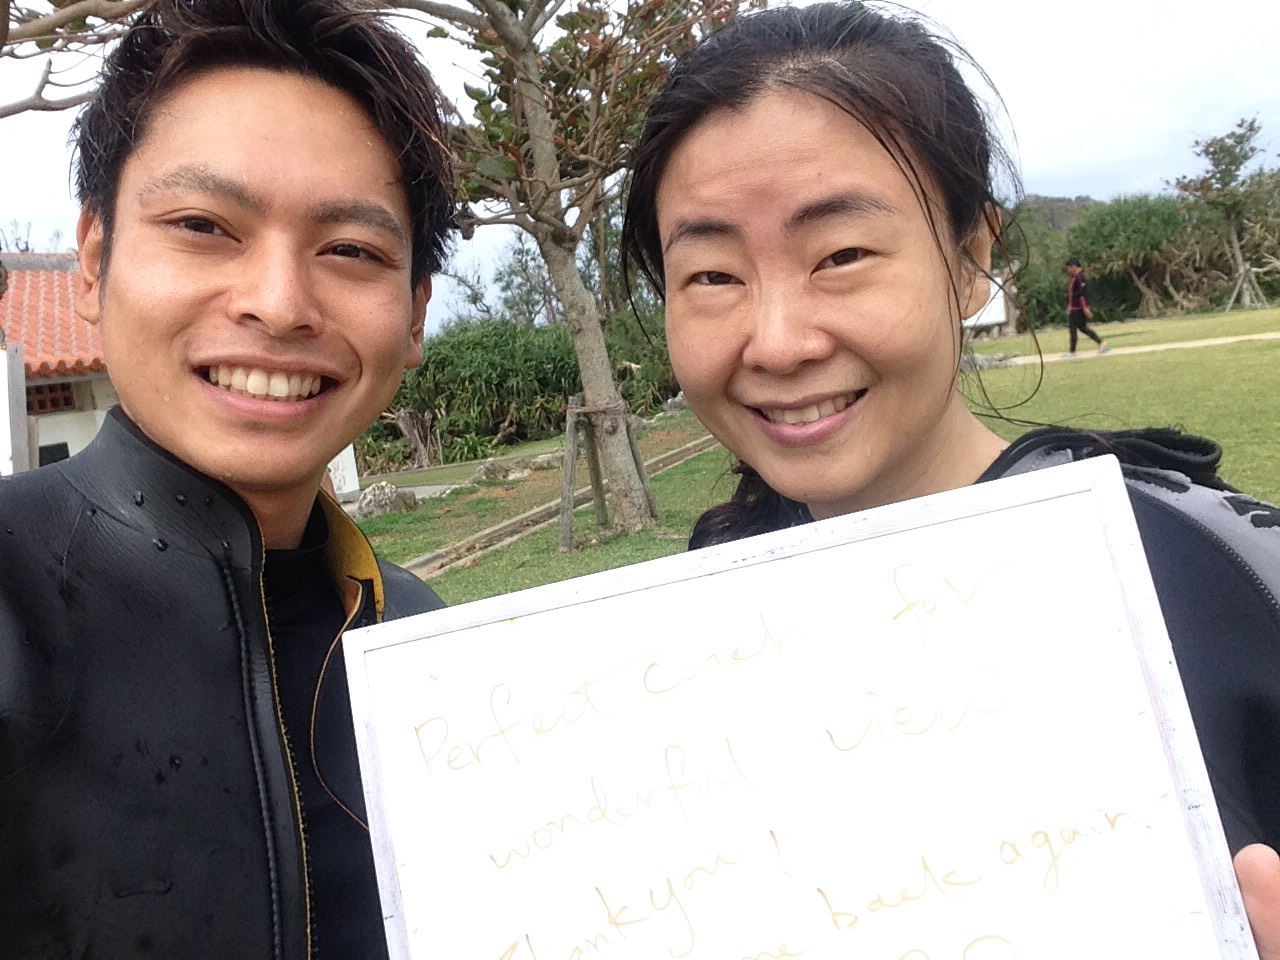 Perfect coach for
wonderful view
Thank you!
me back again.